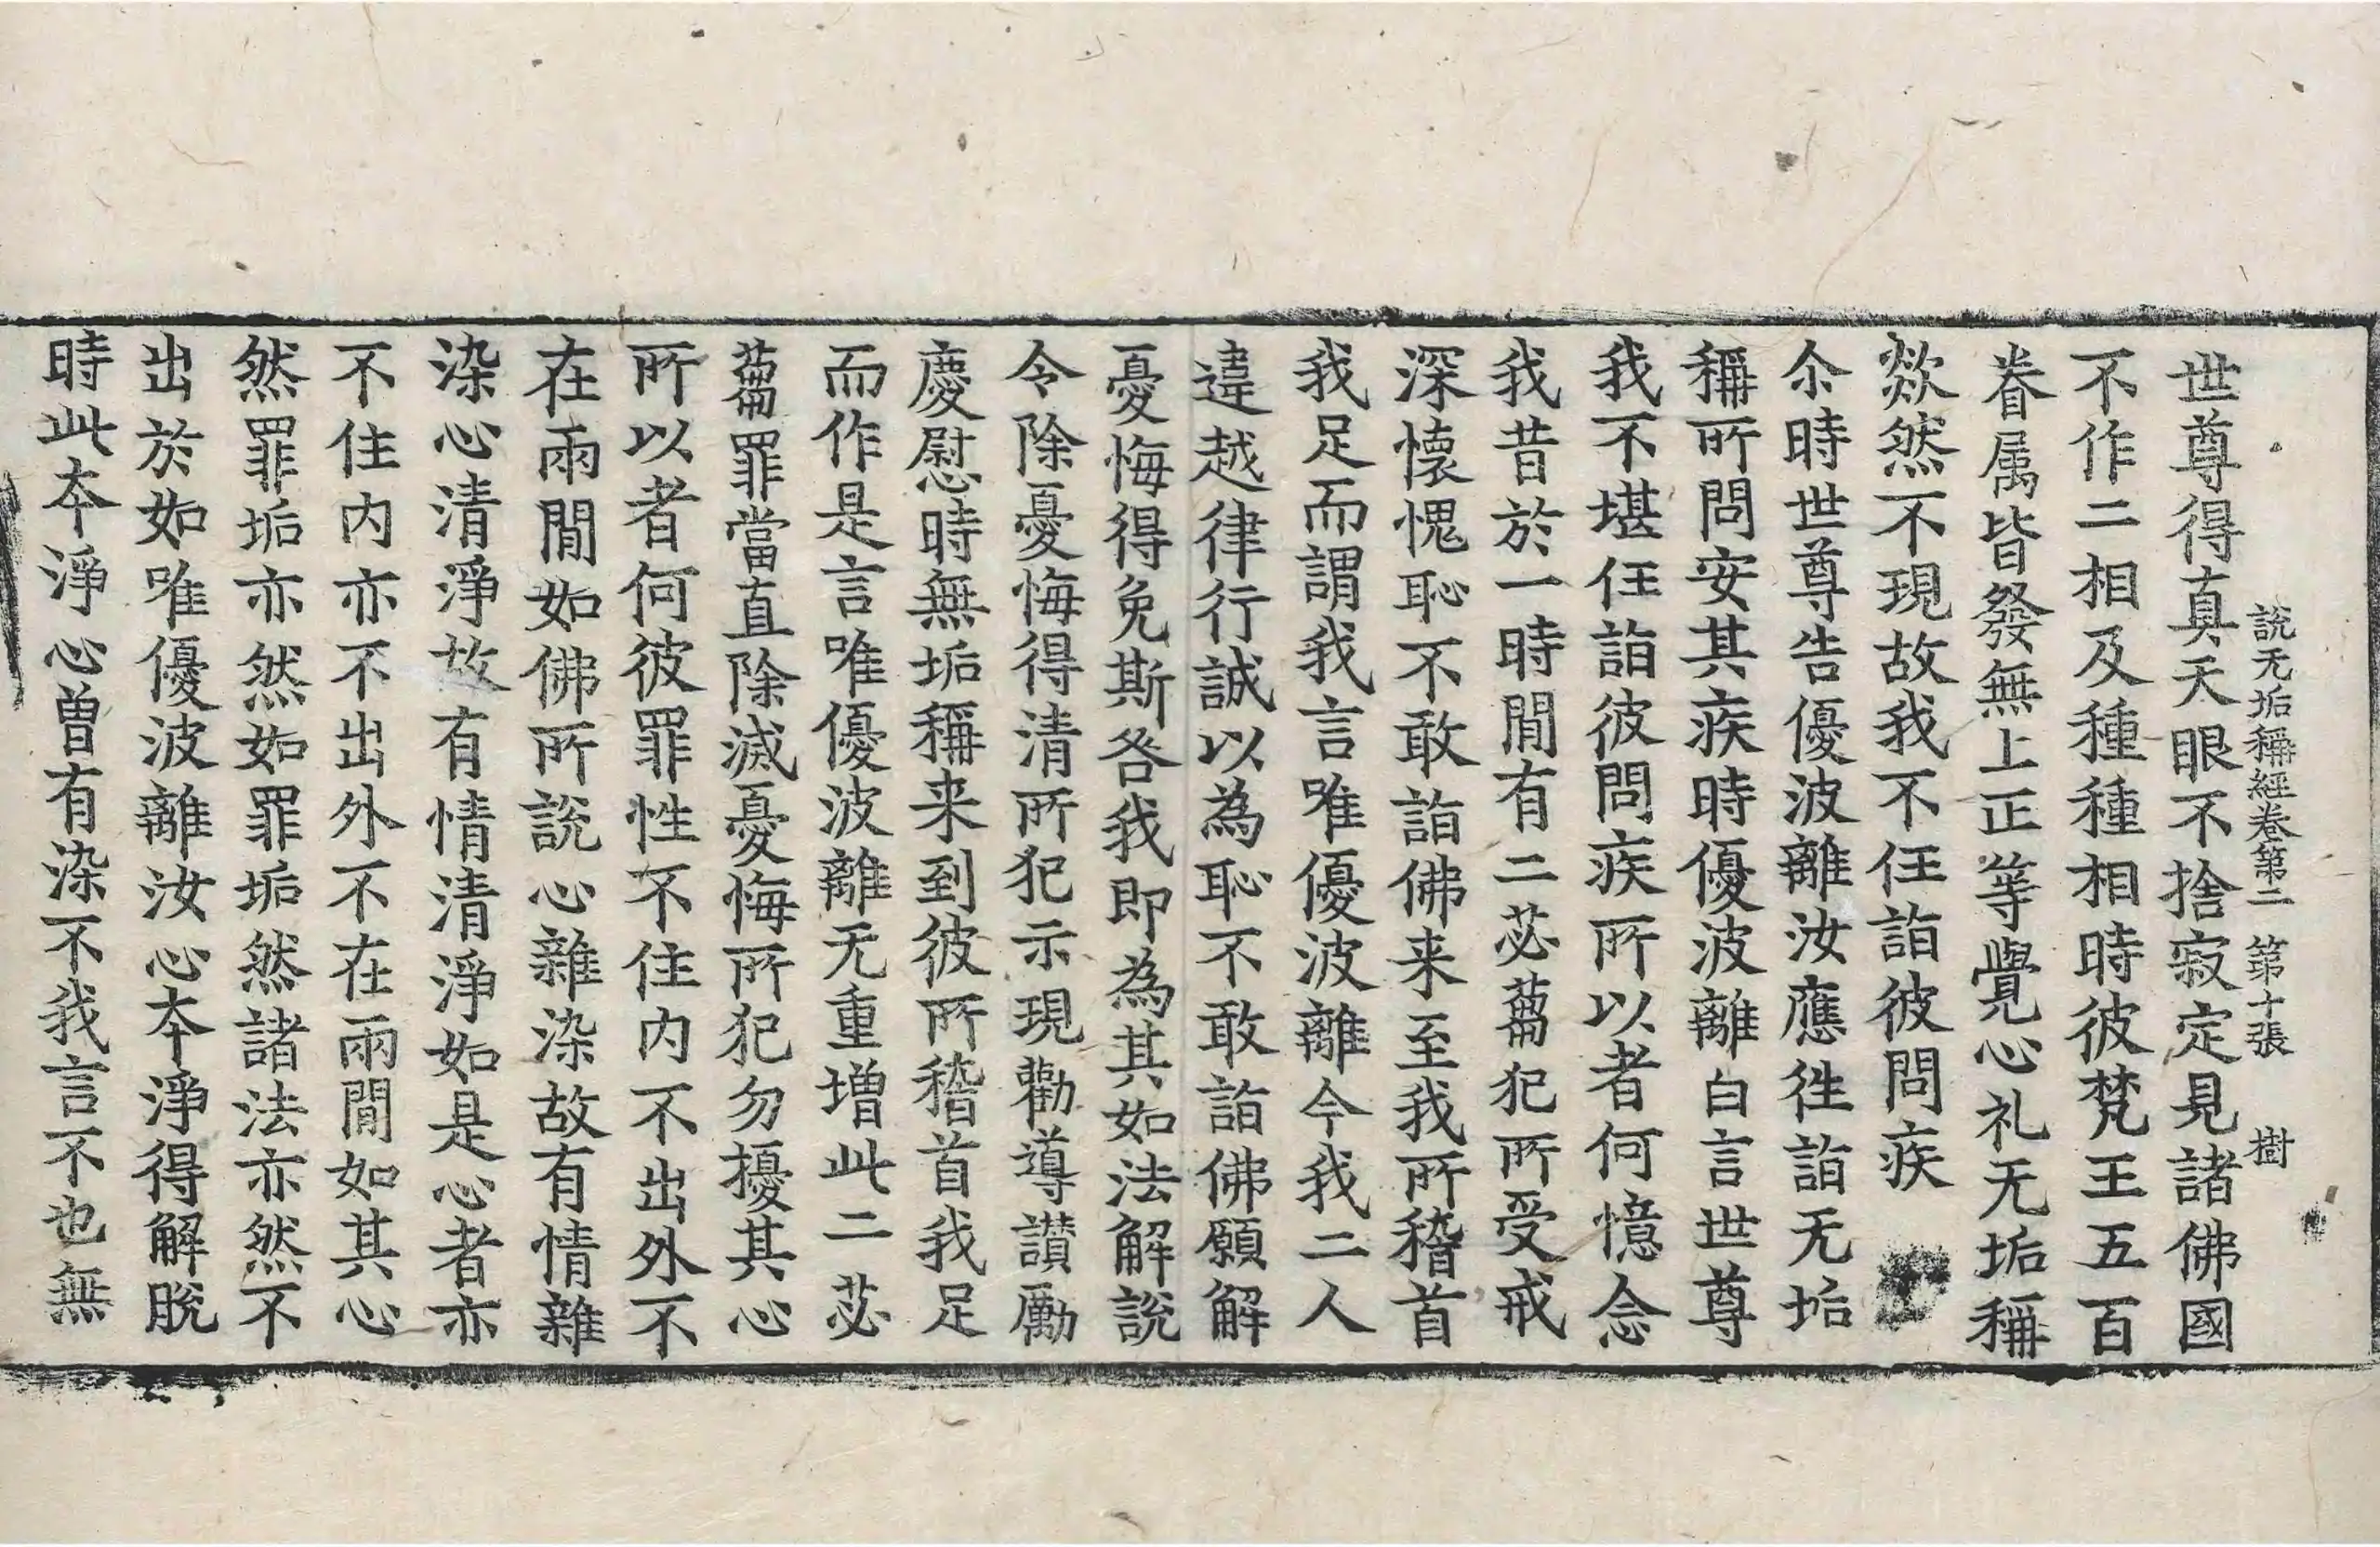 說无垢稱經卷第二 第十張 樹
世尊得真天眼不捨寂定見諸佛國
不作二相及種種相時彼梵王五百
眷属皆發無上正等覺心礼无垢稱
欻然不現故我不任詣彼問疾
尒時世尊告優波離汝應徃詣无垢
稱所問安其疾時優波離白言世尊
我不堪任詣彼問疾所以者何憶念
我昔於一時間有二苾蒭犯所受戒
深懷愧恥不敢詣佛来至我所稽首
我足而謂我言唯優波離今我二人
違越律行誠以為恥不敢詣佛願解
憂悔得免斯咎我即為其如法解說
令除憂悔得清所犯示現勸導讃勵
慶慰時無垢稱来到彼所稽首我足
而作是言唯優波離无重增此二苾
蒭罪當直除滅憂悔所犯勿擾其心
所以者何彼罪性不住内不出外不
在兩間如佛所說心雜染故有情雜
染心清淨故有情清淨如是心者亦
不住内亦不出外不在兩間如其心
然罪垢亦然如罪垢然諸法亦然不
出於如唯優波離汝心夲淨得解脫
時此夲淨心曽有染不我言不也無